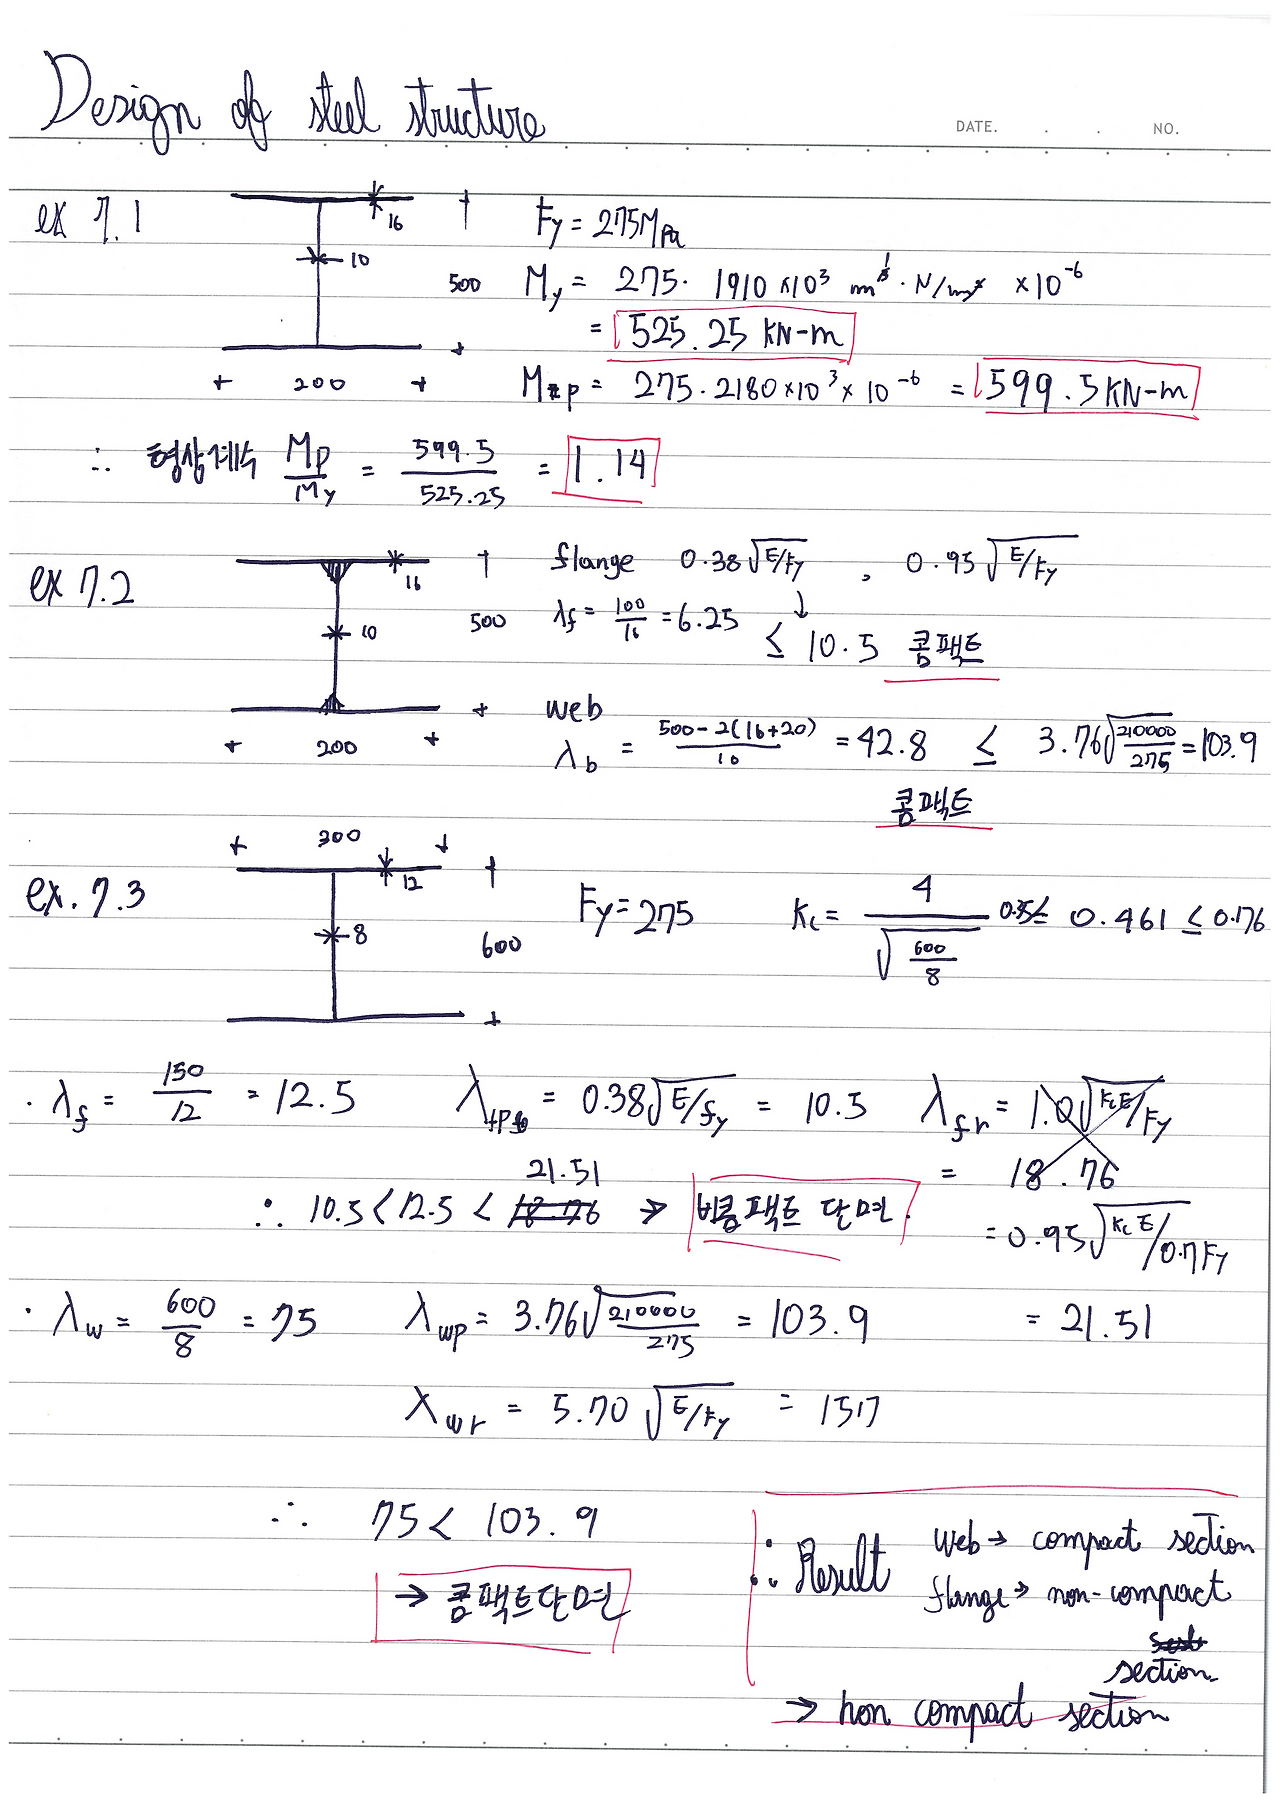 Design of steel structure
DATE. . . NO.
ex 7.1
16
10
500
200
Fy = 275MPa
My = 275 · 1910 ×10³ mm³ · N/mm² ×10⁻⁶
= 525.25 KN-m
Mp = 275 · 2180×10³ × 10⁻⁶ = 599.5 KN-m
∴ 형상계수 Mp/My = 599.5/525.25 = 1.14
ex 7.2
16
10
500
200
flange 0.38√E/Fy , 0.95√E/Fy
λf = 100/16 = 6.25 ≤ 10.5 콤팩트
web
λb = 500-2(16+20)/10 = 42.8 ≤ 3.76√210000/275 = 103.9
콤팩트
ex. 7.3
300
12
8
600
Fy = 275
Kc = 4/√600/8 0.35≤ 0.461 ≤ 0.176
· λf = 150/12 = 12.5 λfp = 0.38√E/fy = 10.5 λfr = 1.0√KcE/Fy
= 18.76
21.51
∴ 10.5 < 12.5 < 18.76 → 비콤팩트 단면.
= 0.95√KcE/0.7Fy
· λw = 600/8 = 75 λwp = 3.76√210000/275 = 103.9 = 21.51
λwr = 5.70 √E/Fy = 157
∴ 75 < 103.9
→ 콤팩트단면
∴ Result web → compact section
flange → non-compact
section
→ non compact section